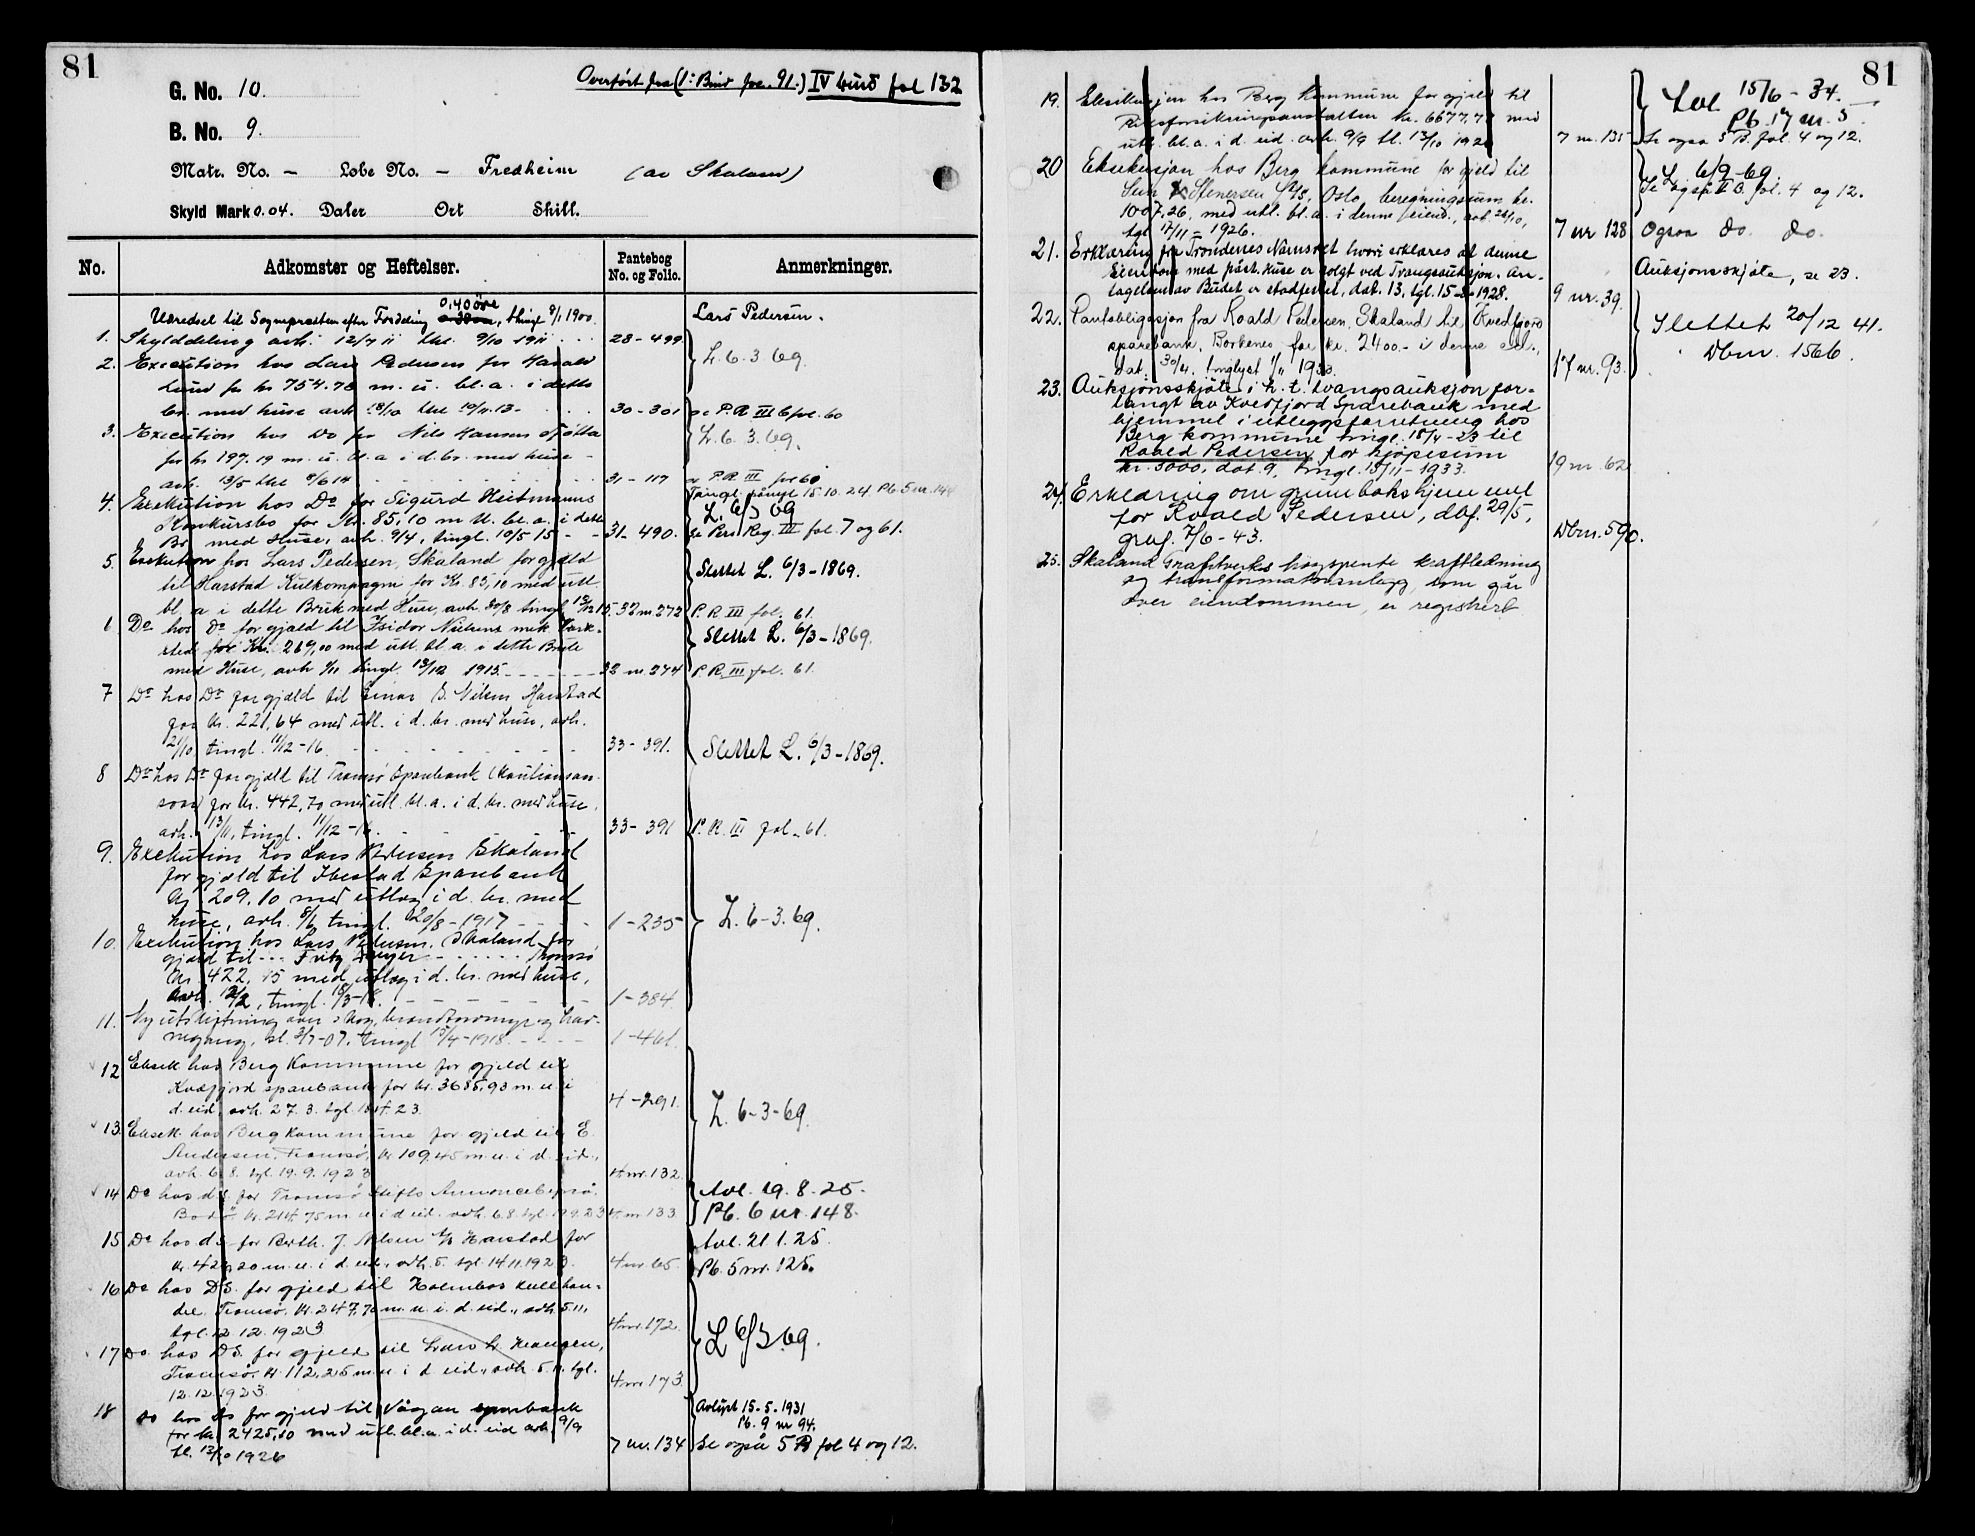 81
Overført fra (1ste Bind fol. 91.) IV bind fol 132
G. No. 10.
B. No. 9.
Matr. No. – Løbe No. – Fredheim (av Skaland)
Skyld Mark 0.04. Daler Ort Skill.
No. Adkomster og Heftelser. Pantebog No. og Folio. Anmerkninger.
0,40 øre
Ydredsel til Sognepræsten efter Fordeling, thingl 9/1 1900. Lars Pedersen.
1. Skylddeling avh. 12/7 11 thl. 9/10 1911 28 - 499
2. Execution hos Lars Pedersen for Harald L. 6. 3 69.
Lund for kr 754.78 m. u. bl. a. i dette
br. med huse avh. 18/10 thl 10/11.13- 30 - 301 se P.R. III B fol. 60
3. Execution hos Do for Nils Hansen Tjøtta L. 6. 3. 69.
for kr 197.19 m. u. bl. a i d. br. med huse -
avh. 13/5 thl 8/6 14 31 - 117 se P.R. III fol 60
Tvangl. 15.10.24 Pb. 5 nr. 144
4. Exekution hos Do for Sigurd Heitmanns L. 6/3 69
Konkursbo for Kr. 85,10 m U. bl. a. i dette
Br med Huse, avh. 9/4, tingl. 10/5 15 - 31 - 490. se Pers. Reg. III fol. 7 og 61.
5. Exekution hos Lars Pedersen, Skaland for gjæld Slettet L. 6/3 - 1869.
til Harstad Kulkompagni for Kr. 85,10 med utl
bl. a i dette Bruk med Huse, avh. 30/8 tingl 13/12 15. 32 nr 272 P.R. III fol. 61
6 Do hos Do for gjæld til Isidor Nielsens mek Værk- Slettet L. 6/3 - 1869.
sted for Kr. 269,00 med utl. bl. a. i dette Bruk
med Huse, avh 1/11 tingl. 13/12 1915. 32 nr 274 P.R. III fol. 61.
7 Do hos Do for gjæld til Einar B. Nilsen Harstad
for kr. 221,64 med utl. i d. br. med huse, avh.
21/10, tingl. 11/12 - 16 33 - 391. Slettet L. 6/3 - 1869.
8 Do hos Do for gjæld til Tromsø Sparebank (Kautionsan-
svar) for kr. 442,70 med utl. bl. a. i d. br. med huse,
avh. 13/11, tingl. 11/12 - 16. 33 - 391 P.R. III fol. 61.
9. Exekution hos Lars Pedersen Skaland
for gjæld til Ibestad Sparebank
kr 209,10 med utlæg i d. br. med
huse, avh. 8/6 tingl. 20/8 - 1917 1 - 235 L. 6 - 3. 69.
10. Exekution hos Lars Pedersen, Skaland for
gjæld til Fritz Meyer Tromsø
kr. 422,15 med utlæg i d. br. med huse,
avh. 12/2, tingl. 18/3 - 18. 1 - 384
11. Ny utskiftning over skog, brændtorvmyr og hav-
negang, sl. 3/7 - 07, tingl 15/4 - 1918. 1 - 461.
12 Eksek hos Berg Kommune for gjeld til
Kvæfjord sparebank for kr. 3685,93 m. u. i
d. eid, avh. 27. 3. tgl. 18.4. 23. 4 - 291. L. 6 - 3 - 69.
13. Eksek. hos Berg Kommune for gjeld til E.
Andersen, Tromsø, kr 109,45 m. u. i d. eid.,
avh. 6. 8. tgl. 19. 9. 1923 4 nr. 132.
14 Do hos ds for Tromsø Stifts Annoncebyrå, Avl. 19. 8. 25.
Bodø. kr. 214.75 m u i d eid. avh. 6.8. tgl. 19 9.23 4 nr 133 Pb. 6 nr. 148.
15 Do hos ds for Berth. J. Nilsen A/S Harstad for Avl. 21. 1. 25.
kr. 429,20 m. u. i d. eid., avh. 5. tgl. 14 11.1923. 4 nr 65. Pb. 5 nr. 125.
16 Do hos Ds. for gjeld til Holmbos kullhan-
del Tromsø, kr. 247,70 m. u i. d. eid., avh. 5.11,
tgl. 12. 12. 1923 4 nr. 172. L 6/3 69.
17 Do hos Ds. for gjeld til Hansen,
Tromsø. kr. 112,25 m. u. i d eid., avh. 5.11. tgl.
12. 12. 1923. 4 nr 173.
18 Do hos Ds for gjeld til Vågan sparebank Avlyst 15 - 5. 1931
for kr. 2425,10 med utl. bl. a. i d. eid avh. 9/9 Pb. 9 nr 94.
tl. 13/10 1926 7 nr. 134 Se også 5 B fol 4 og 12.
81
19. Eksekusjon hos Berg kommune for gjeld til Avl. 15/6 - 34.
Riksforsikringsanstalten kr. 6677,77 med Pb. 17 nr. 5
utl. bl. a. i d. eid. avh. 9/9 tl. 13/10 1926 7 nr. 135 Se også 5 B. fol. 4 og 12.
20 Eksekusjon hos Berg kommune for gjeld til L 6/9 - 69.
Stenersen A/S, Oslo beregningssum kr. Se også II B. fol. 4 og 12.
1007,26, med utl. bl. a. i denne eiend., avh. 26/10,
tgl. 17/11 - 1926. 7 nr 128 Også do. do.
21. Erklæring fra Trondenes Namsrett hvori erklæres at denne Auksjonsskjøte, se 23.
Eiendom med påst. Huse er solgt ved Tvangsauksjon. An-
tagelsen av Budet er stadfestet, dat. 13, tgl. 15-8-1928. 9 nr. 39.
22. Pantobligasjon fra Roald Pedersen, Skaland til Kvæfjord Slettet 20/12 41.
sparebank, Borkenes for kr. 2400.- i denne eid., Dbnr. 1566.
dat. 30/4. tinglyst 1/11 1933. 17 nr. 93.
23. Auksjonsskjøte i h. t. tvangsauksjon for-
langt av Kvæfjord Sparebank med
hjemmel i utleggsforretning hos
Berg kommune tingl. 18/4 - 23 til
Roald Pedersen for kjøpesum
kr. 3000, dat. 9, tingl. 15/11 - 1933. 19 nr. 62
24. Erklæring om grunnbokshjemmel
for Roald Pedersen, dbf. 29/5,
grbf. 7/6 - 43. Dbnr. 590.
25. Skaland Grafitverks høyspente kraftledning
og transformatoranlegg, som går
over eiendommen, er registrert